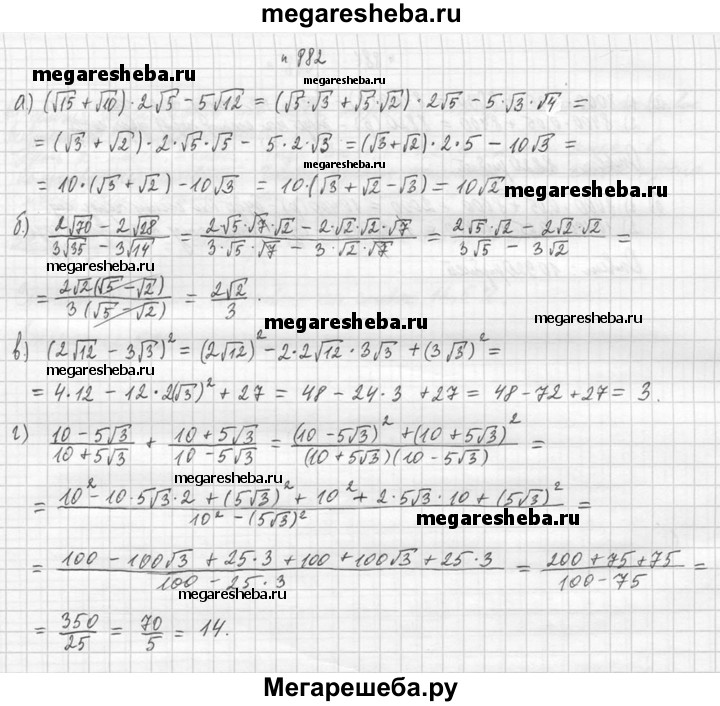 megaresheba.ru
н 982
megaresheba.ru
megaresheba.ru
а) (√15 + √10) · 2√5 − 5√12 = (√5·√3 + √5·√2) · 2√5 − 5·√3·√4 =
= (√3 + √2) · 2·√5·√5 − 5·2·√3 = (√3+√2)·2·5 − 10√3 =
megaresheba.ru
= 10·(√3 + √2) − 10√3 = 10·(√3 + √2 − √3) = 10√2
megaresheba.ru
б) (2√70 − 2√28)/(3√35 − 3√14) = (2√5·√7·√2 − 2·√2·√2·√7)/(3·√5·√7 − 3·√2·√7) = (2√5·√2 − 2√2·√2)/(3√5 − 3√2) =
megaresheba.ru
= 2√2(√5 − √2)/3(√5 − √2) = 2√2/3.
megaresheba.ru
megaresheba.ru
в) (2√12 − 3√3)² = (2√12)² − 2·2√12·3√3 + (3√3)² =
megaresheba.ru
= 4·12 − 12·2(√3)² + 27 = 48 − 24·3 + 27 = 48 − 72 + 27 = 3.
г) (10 − 5√3)/(10 + 5√3) + (10 + 5√3)/(10 − 5√3) = ((10 − 5√3)² + (10 + 5√3)²)/((10 + 5√3)(10 − 5√3)) =
megaresheba.ru
= (10² − 10·5√3·2 + (5√3)² + 10² + 2·5√3·10 + (5√3)²)/(10² − (5√3)²) =
megaresheba.ru
= (100 − 100√3 + 25·3 + 100 + 100√3 + 25·3)/(100 − 25·3) = (200 + 75 + 75)/(100 − 75) =
megaresheba.ru
= 350/25 = 70/5 = 14.
Мегарешеба.ру